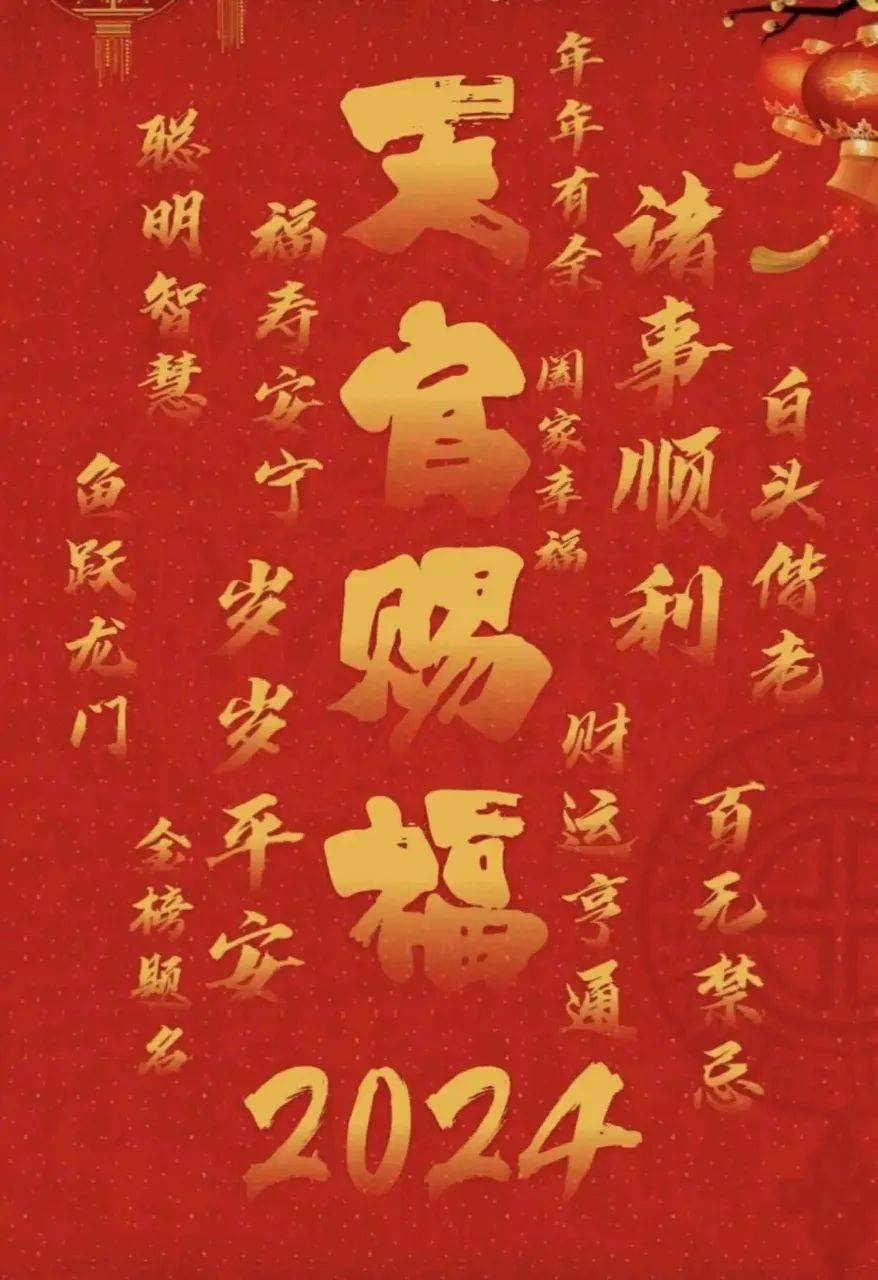 天官赐福
年年有余
诸事顺利
阖家幸福
白头偕老
财运亨通
百无禁忌
聪明智慧
福寿安宁
鱼跃龙门
岁岁平安
金榜题名
2024